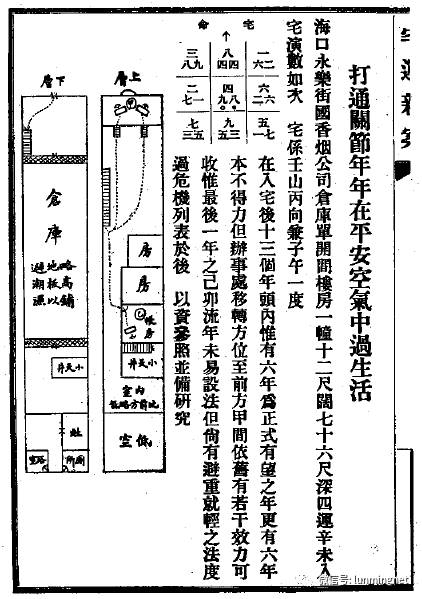 打通關節年年在平安空氣中過生活
海口永樂街國香烟公司倉庫單開間樓房一幢十二尺闊七十六尺深四運辛未入
宅演數如次　宅係壬山丙向兼子午一度
宅命
↑
三八九　八四四　一六二
二七一　四九八　六二六
七三五　九五三　五一七
在入宅後十三個年頭內惟有六年爲正式有望之年更有六年
本不得力但辦事處移轉方位至前方甲間依舊有若干效力可
收惟最後一年之己卯流年未易設法但尙有避重就輕之法度
過危機列表於後　以資參照並備研究
層上
房
房
帳房
井天小
內室
低略方前比
室低
層下
倉庫
略高鋪
地板以
避潮濕
井天小
灶
所厠
微信号: lunmingnet